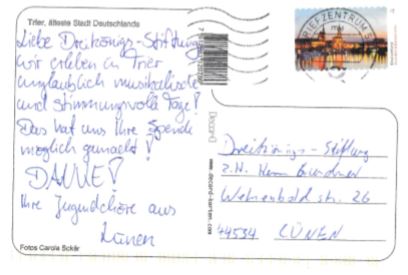 Trier, älteste Stadt Deutschlands
Liebe Dreikönigs-Stiftung
wir erleben in Trier
unglaublich musikalische
und stimmungsvolle Tage!
Das hat uns Ihre Spende
möglich gemacht!
DANKE!
Ihre Jugendchöre aus
Lünen
Fotos Carola Sckär
BRIEFZENTRUM 5
www.discard-karten.com
Dreikönigs-Stiftung
z.H. Herrn
str. 26
44534 LÜNEN